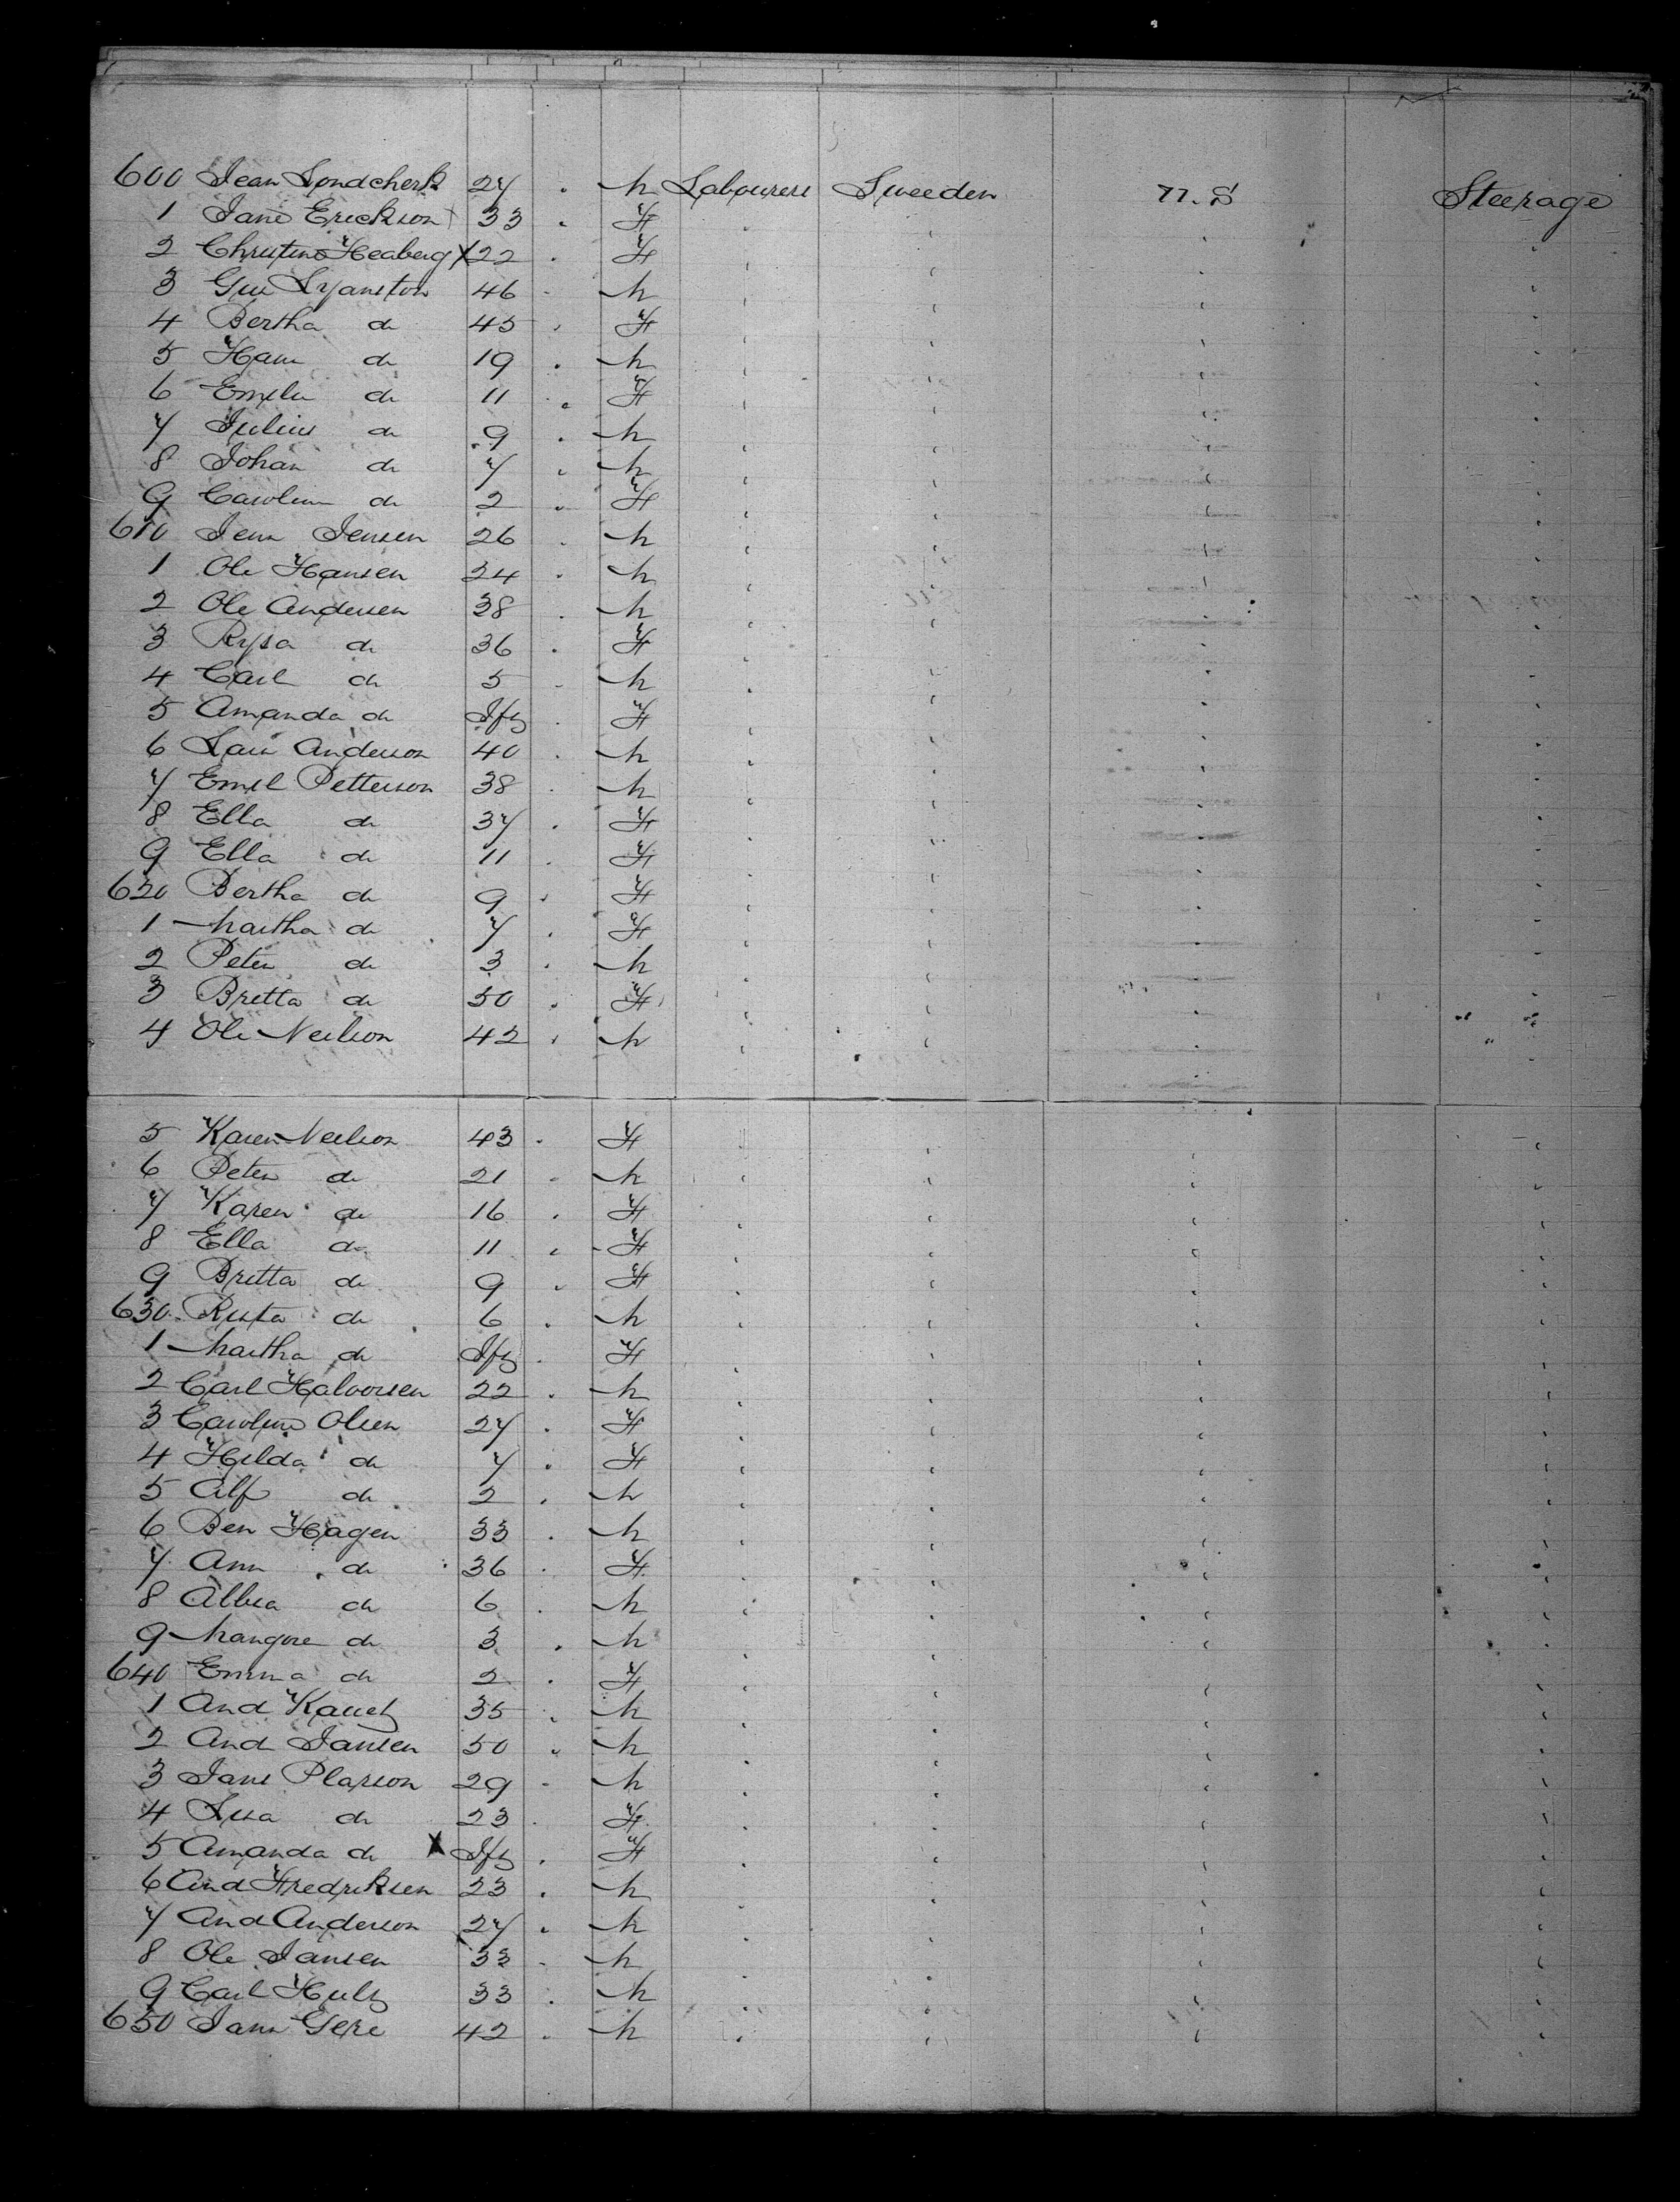 600 Jean Londcherk 27 " M Labourers Sweeden U.S Steerage
1 Jane Erickson 33 " F
2 Christine Heaberg X 22 " F
3 Gus Lyanston 46 " M
4 Bertha do 45 " F
5 Hans do 19 " M
6 Emelia do 11 " F
7 Julius do 9 " M
8 Johan do 7 " M
9 Caroline do 2 " F
610 Jens Jensen 26 " M
1 Ole Hansen 24 " M
2 Ole Andersen 38 " M
3 Rysa do 36 " F
4 Carl do 5 " M
5 Amanda do Ift " F
6 Lars Anderson 40 " M
7 Emil Petterson 38 " M
8 Ella do 37 " F
9 Ella do 11 " F
620 Bertha do 9 " F
1 Martha do 7 " F
2 Peter do 3 " M
3 Bretta do 50 " F
4 Ole Neilson 42 " M
5 Karen Neilson 43 " F
6 Peter do 21 " M
7 Karen do 16 " F
8 Ella do 11 " F
9 Britta do 9 " F
630 do 6 " M
1 Martha do Ift " F
2 Carl Halvorsen 22 " M
3 Caroline Olsen 27 " F
4 Hilda do 7 " F
5 Alf do 2 " M
6 Ben Hagen 33 " M
7 Ann do 36 " F
8 do 6 " M
9 do 3 " M
640 Emma do 2 " F
1 And 35 " M
2 And Jansen 50 " M
3 Jans Plarson 29 " M
4 Lisa do 23 " F
5 Amanda do X Ift " F
6 And Fredriksen 23 " M
7 And Anderson 27 " M
8 Ole Jansen 33 " M
9 Carl Hults 33 " M
650 Jans Gere 42 " M